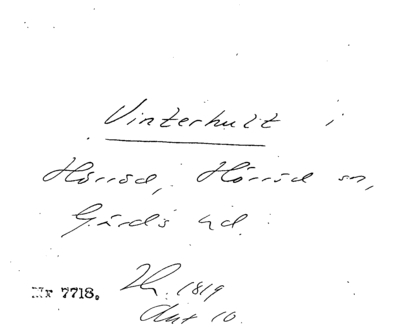 Vinterhult i
Hörröd, Hörröd sn,
Gärds hd.
Nr 7718. Lh. 1819
Akt 10.